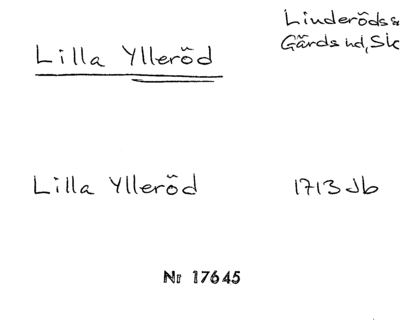 Linderöds s
Gärds hd, Sk
Lilla Ylleröd
Lilla Ylleröd 1713 Jb
Nr 17645